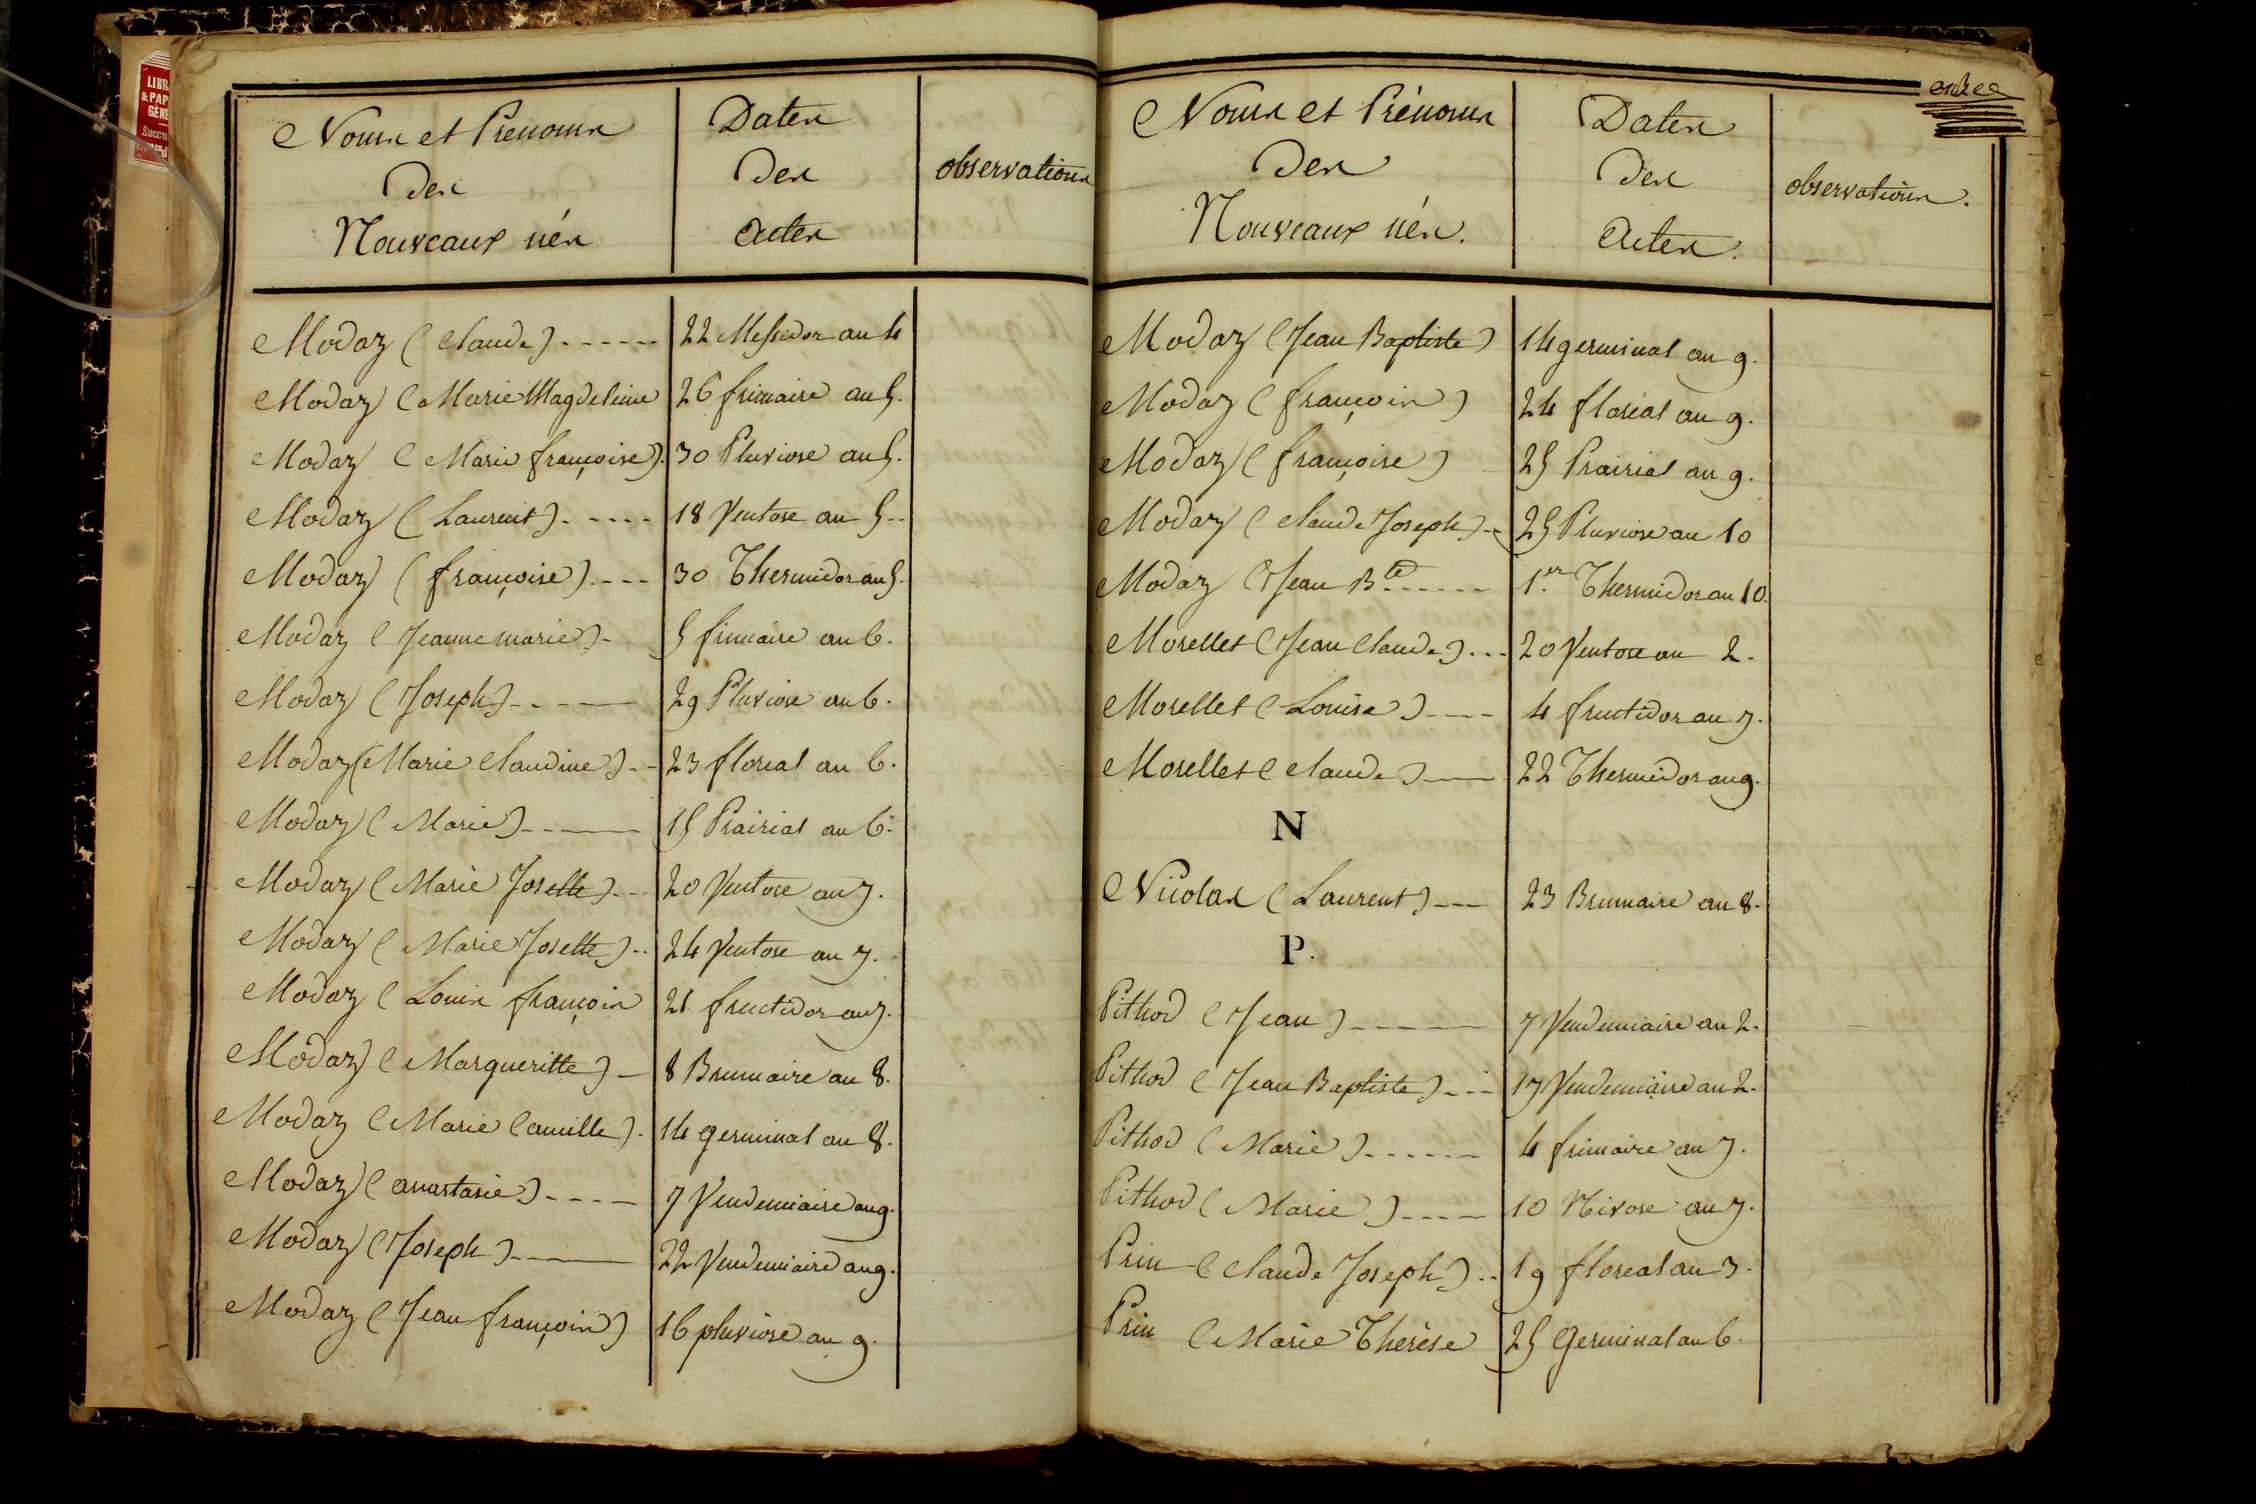 Noms et Prenoms
des
Nouveaux nés
Dates
des
actes
observations
Modaz (Claude) 22 Messidor an 4
Modaz (Marie Magdeleine 26 frimaire an 5.
Modaz (Marie françoise). 30 Pluviose an 5.
Modaz (Laurent) 18 Ventose an 5
Modaz (françoise) 30 Thermidor an 5.
Modaz (Jeanne marie) 5 frimaire an 6.
Modaz (Joseph) 29 Pluviose an 6.
Modaz (Marie Claudine) 23 floreal an 6.
Modaz (Marie) 15 Prairial an 6.
Modaz (Marie Josette) 20 Ventose an 7.
Modaz (Marie Josette) 24 Ventose an 7.
Modaz (Louis françois 21 fructidor an 7.
Modaz (Margueritte) 8 Brumaire an 8.
Modaz (Marie Camille). 14 germinal an 8.
Modaz (anastasie) 7 Vendemiaire an 9.
Modaz (Joseph) 22 Vendemiaire an 9.
Modaz (Jean françois) 16 pluviose an 9.
Noms et Prénoms
des
Nouveaux nés.
Dates
des
Actes.
observations.
Modaz (Jean Baptiste) 14 germinal an 9.
Modaz (françois) 24 floréal an 9.
Modaz (françoise) 25 Prairial an 9.
Modaz (Claude Joseph) 25 Pluviose an 10
Modaz (Jean Bte 1er Thermidor an 10.
Morellet (Jean Claude) 20 Ventose an 2.
Morellet (Louise) 4 fructidor an 7.
Morellet (Claude) 22 Thermidor an 9.
N
Nicolas (Laurent) 23 Brumaire an 8.
P.
Pithod (Jean) 7 Vendemiaire an 2.
Pithod (Jean Baptiste) 17 Vendemiaire an 2.
Pithod (Marie) 4 frimaire an 7.
Pithod (Marie) 10 Nivose an 7.
Prin (Claude Joseph) 19 floreal an 3.
Prin (Marie Thérèse 25 Germinal an 6.